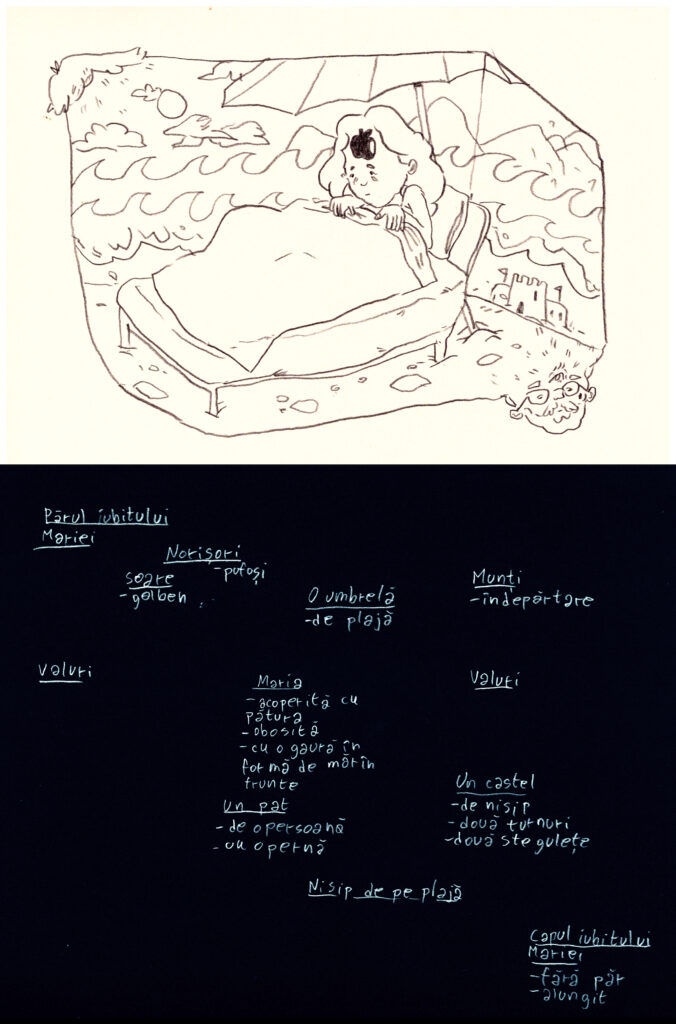 Părul iubitului
Mariei
Norișori
-pufoși
soare
-galben
O umbrelă
-de plajă
Munți
-îndepărtare
Valuri
Valuri
Maria
-acoperită cu
pătura
-obosită
-cu o gaură în
formă de măr în
frunte
Un pat
-de o persoană
-cu o pernă
Un castel
-de nisip
-două turnuri
-două stegulețe
Nisip de pe plajă
Capul iubitului
Mariei
-fără păr
-alungit